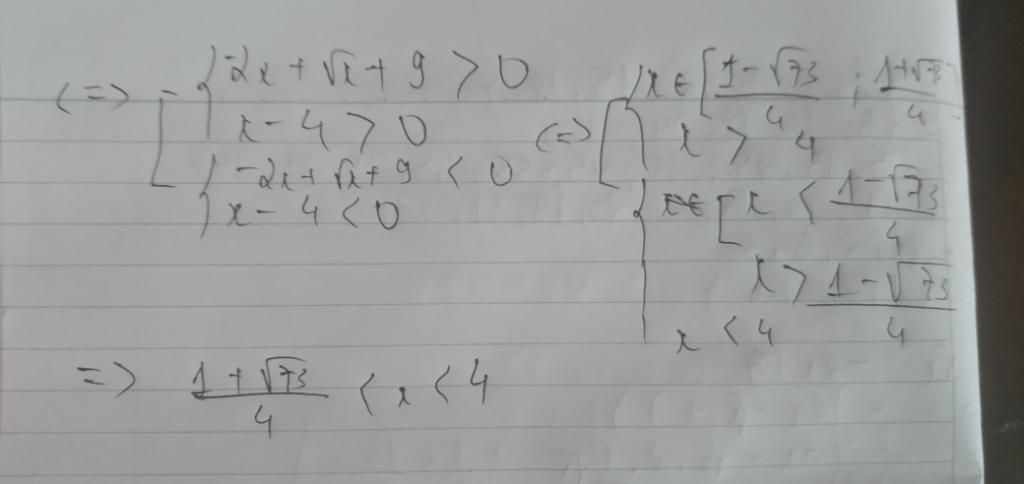 <=> { -2x + √x + 9 > 0
x - 4 > 0
{ -2x + √x + 9 < 0
x - 4 < 0
<=> [ { x ∈ [ (1 - √73)/4 ; (1 + √73)/4
x > 4
{ [ x < (1 - √73)/4
x > (1 - √73)/4
x < 4
=> (1 + √73)/4 < x < 4